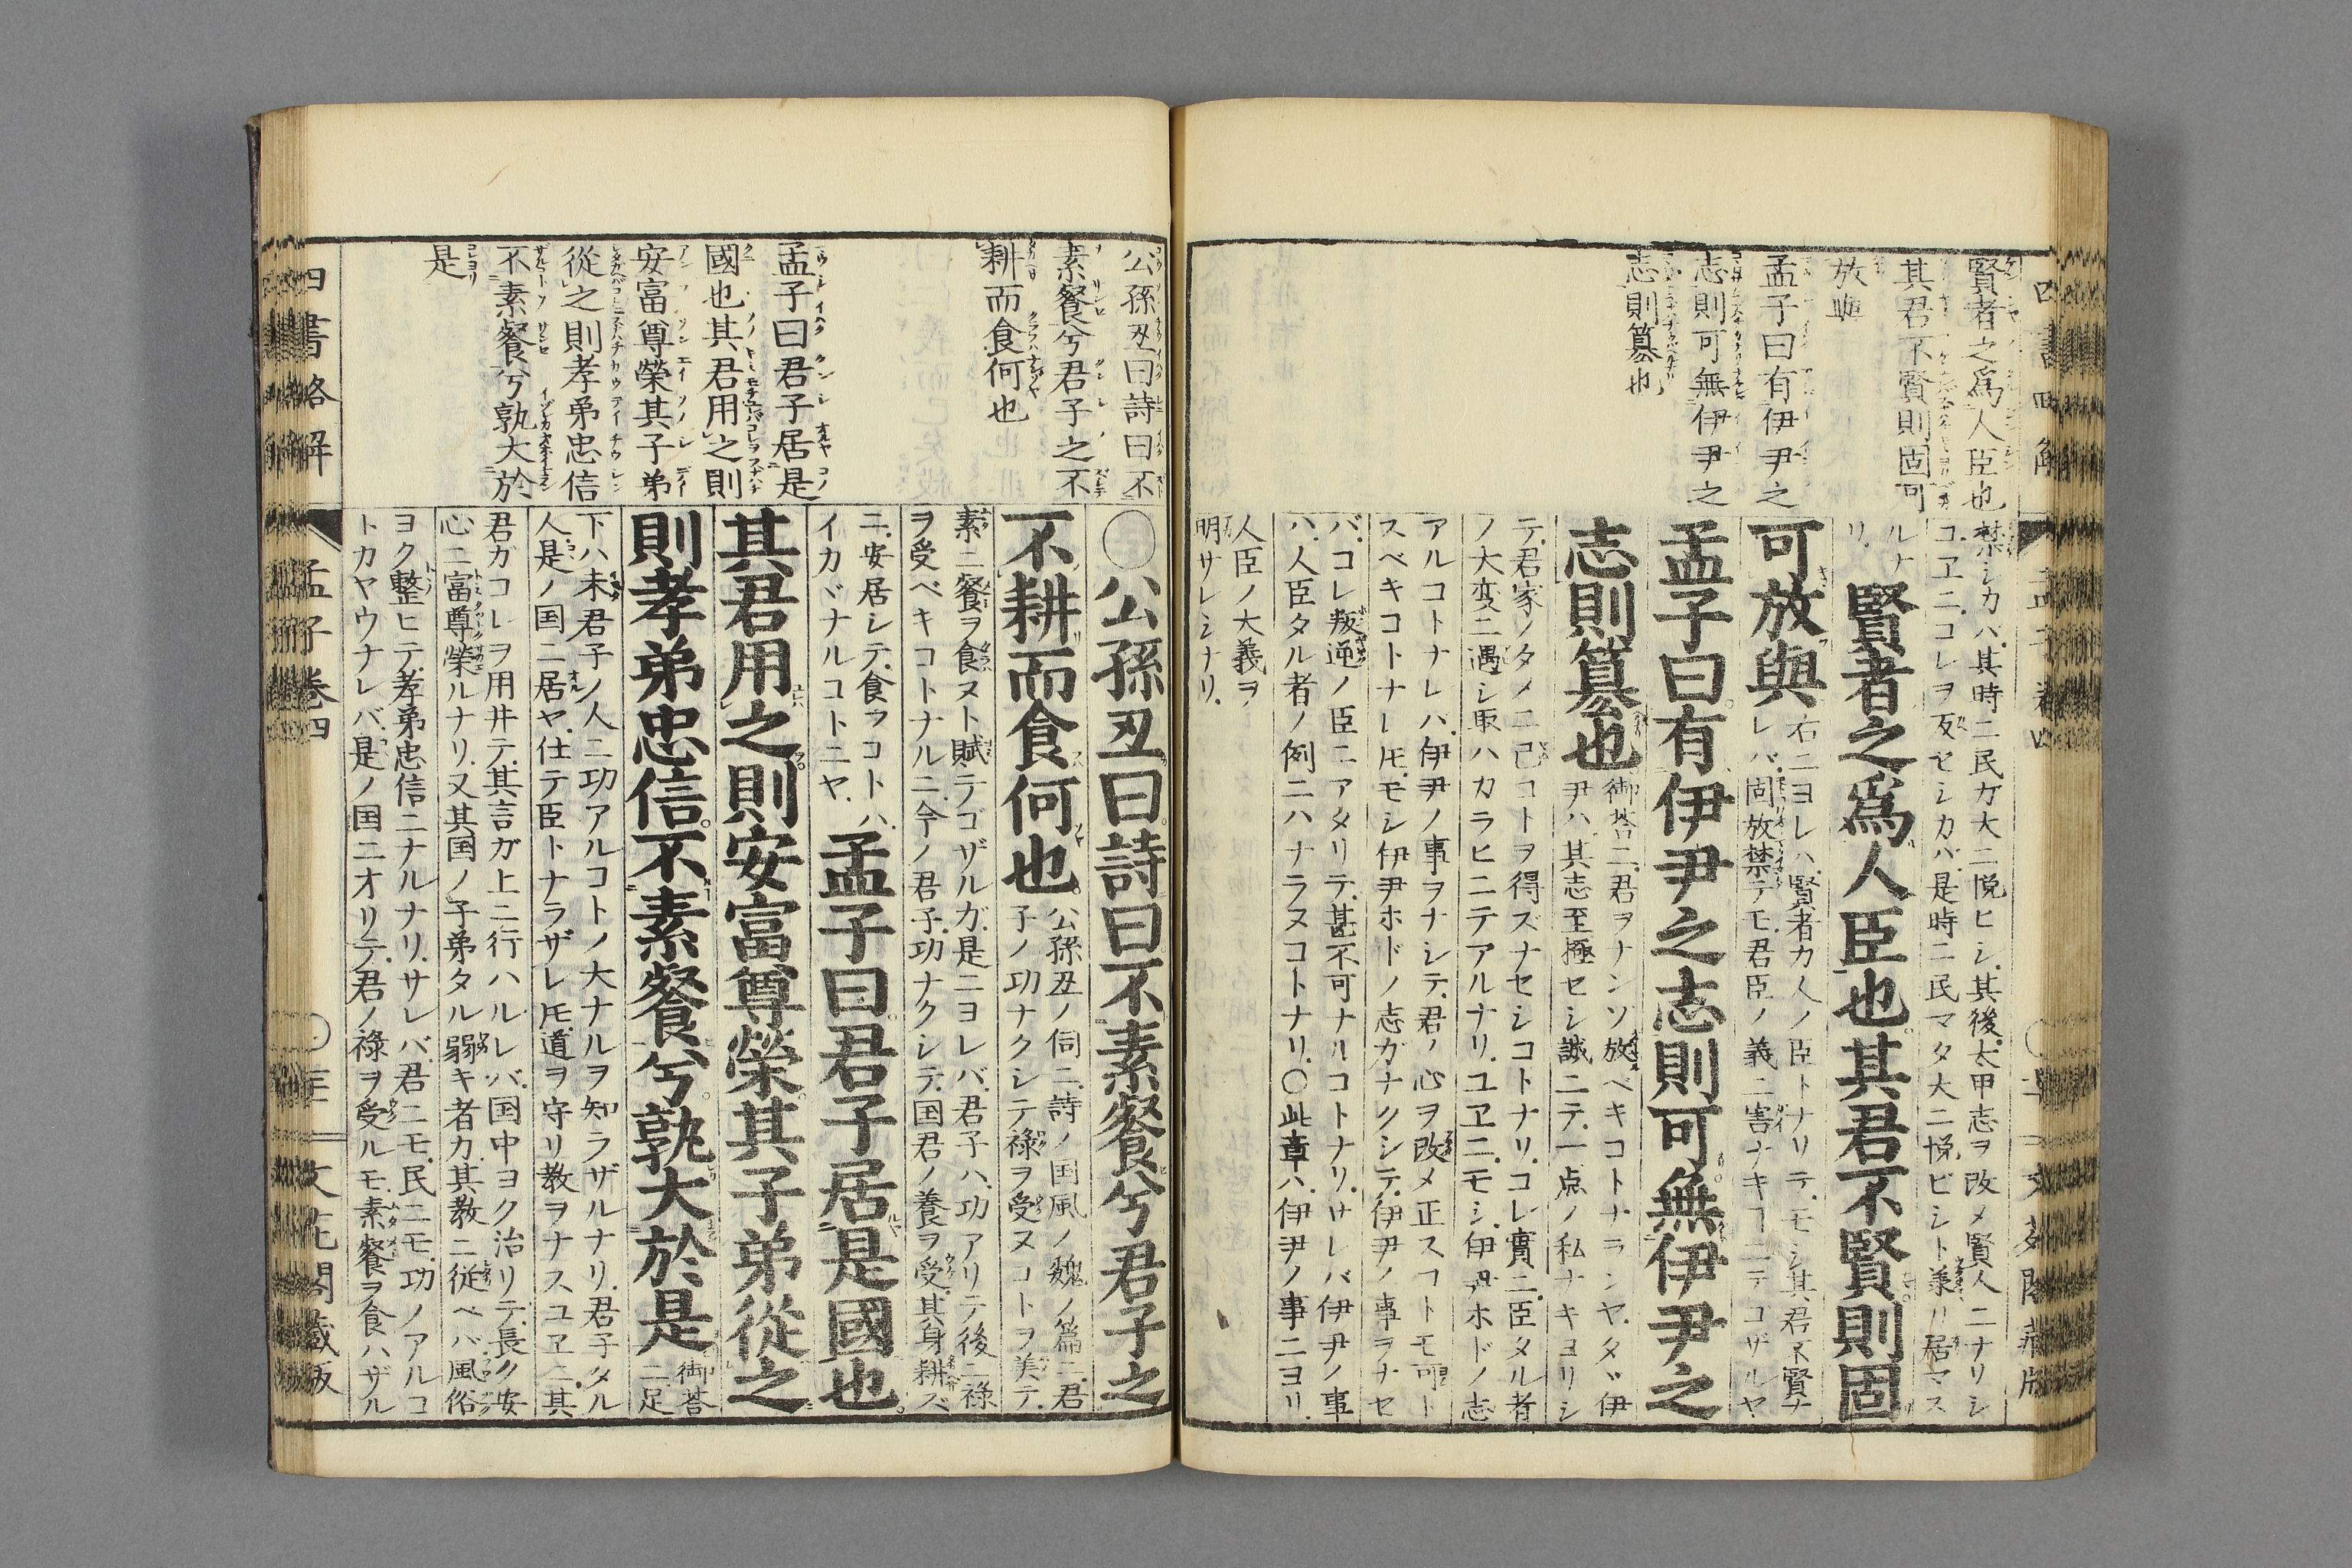 賢者之爲人臣也
其君不賢則固可
放與
孟子曰有伊尹之
志則可無伊尹之
志則簒也
禁シカバ其時ニ民カ大ニ悦ヒシ其後太甲志ヲ改メ賢人ニナリシ
ユヱニコレヲ反セシカバ是時ニ民マタ大ニ悦ビシト兼リ居マス
ルナ
リ 賢者之爲人臣也其君不賢則固
可放與
右ニヨレハ賢者カ人ノ臣トナリテモシ其君不賢ナ
レバ固放禁テモ君臣ノ義ニ害ナキコニテコザルヤ
孟子曰有伊尹之志則可無伊尹之
志則簒也
御荅ニ君ヲナンソ放ベキコトナランヤタヾ伊
尹ハ其志至極セシ誠ニテ一点ノ私ナキヨリシ
テ君家ノタメニ已コトヲ得ズナセシコトナリコレ實ニ臣タル者
ノ大変ニ遇シ取ハカラヒニテアルナリユヱニモシ伊尹ホドノ志
アルコトナレバ伊尹ノ事ヲナシテ君ノ心ヲ改メ正スコトモ可ト
スベキコトナレ𪜈モシ伊尹ホドノ志ガナクシテ伊尹ノ事ヲナセ
バコレ叛逆ノ臣ニアタリテ甚不可ナルコトナリサレバ伊尹ノ事
ハ人臣タル者ノ例ニハナラヌコトナリ〇此章ハ伊尹ノ事ニヨリ
人臣ノ大義ヲ
明サレシナリ
公孫丑曰詩曰不
素餐兮君子之不
耕而食何也
孟子曰君子居是
國也其君用之則
安富尊榮其子弟
從之則孝弟忠信
不素餐兮孰大於
是
〇公孫丑曰詩曰不素餐兮君子之
不耕而食何也
公孫丑ノ伺ニ詩ノ国風ノ魏ノ篇ニ君
子ノ功ナクシテ禄ヲ受ヌコトヲ美テ
素ニ餐ヲ食ヌト賦テゴザルガ是ニヨレバ君子ハ功アリテ後ニ禄
ヲ受ベキコトナルニ今ノ君子功ナクシテ国君ノ養ヲ受其身耕ス
ニ安居シテ食フコトハ
イカヾナルコトニヤ
孟子曰君子居是國也
其君用之則安富尊榮其子弟從之
則孝弟忠信不素餐兮孰大於是
御荅
ニ足
下ハ未君子ノ人ニ功アルコトノ大ナルヲ知ラザルナリ君子タル
人是ノ国ニ居ヤ仕テ臣トナラザレ𪜈道ヲ守リ教ヲナスユヱニ其
君ガコレヲ用井テ其言ガ上ニ行ハルレバ国中ヨク治リテ長ク安
心ニ富尊榮ルナリ又其国ノ子弟タル弱キ者カ其教ニ従ベバ風俗
ヨク整ヒテ孝弟忠信ニナルナリサレバ君ニモ民ニモ功ノアルコ
トカヤウナレバ是ノ国ニオリテ君ノ禄ヲ受ルモ素餐ヲ食ハザル
四書略解 孟子巻四 文花閣蔵版